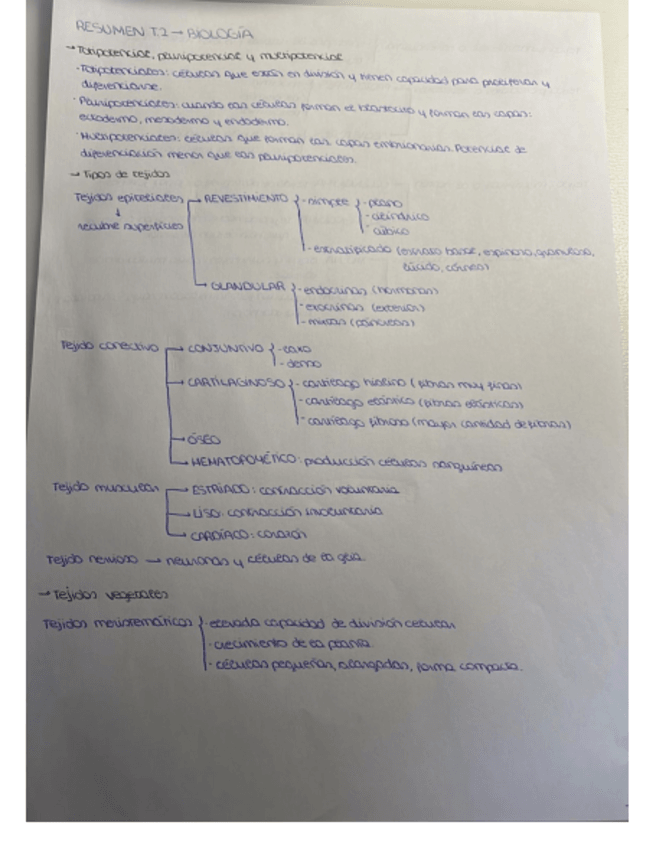 RESUMEN T.2 → BIOLOGÍA
→ Totipotencias, pluripotencias y multipotencias
· Totipotenciales: células que están en división y tienen capacidad para proliferar y
diferenciarse.
· Pluripotenciales: cuando las células forman el blastocito y forman las capas:
ectodermo, mesodermo y endodermo.
· Multipotenciales: células que forman las capas embrionarias. Potencial de
diferenciación menor que las pluripotenciales.
→ Tipos de tejidos
Tejidos epiteliales → REVESTIMIENTO - simple - plano
↓ - cilíndrico
recubre superficies - cúbico
- estratificado (estrato basal, espinoso, granuloso,
lúcido, córneo)
→ GLANDULAR - endocrinas (hormonas)
- exocrinas (exterior)
- mixtas (páncreas)
Tejido conectivo → CONJUNTIVO - laxo
- denso
→ CARTILAGINOSO - cartílago hialino (fibras muy finas)
- cartílago elástico (fibras elásticas)
- cartílago fibroso (mayor cantidad de fibras)
→ ÓSEO
→ HEMATOPOYÉTICO: producción células sanguíneas
Tejido muscular → ESTRIADO: contracción voluntaria
→ LISO: contracción involuntaria
→ CARDÍACO: corazón
Tejido nervioso → neuronas y células de la glía.
→ Tejidos vegetales
Tejidos meristemáticos · elevada capacidad de división celular
· crecimiento de la planta
· células pequeñas, alargadas, forma compacta.